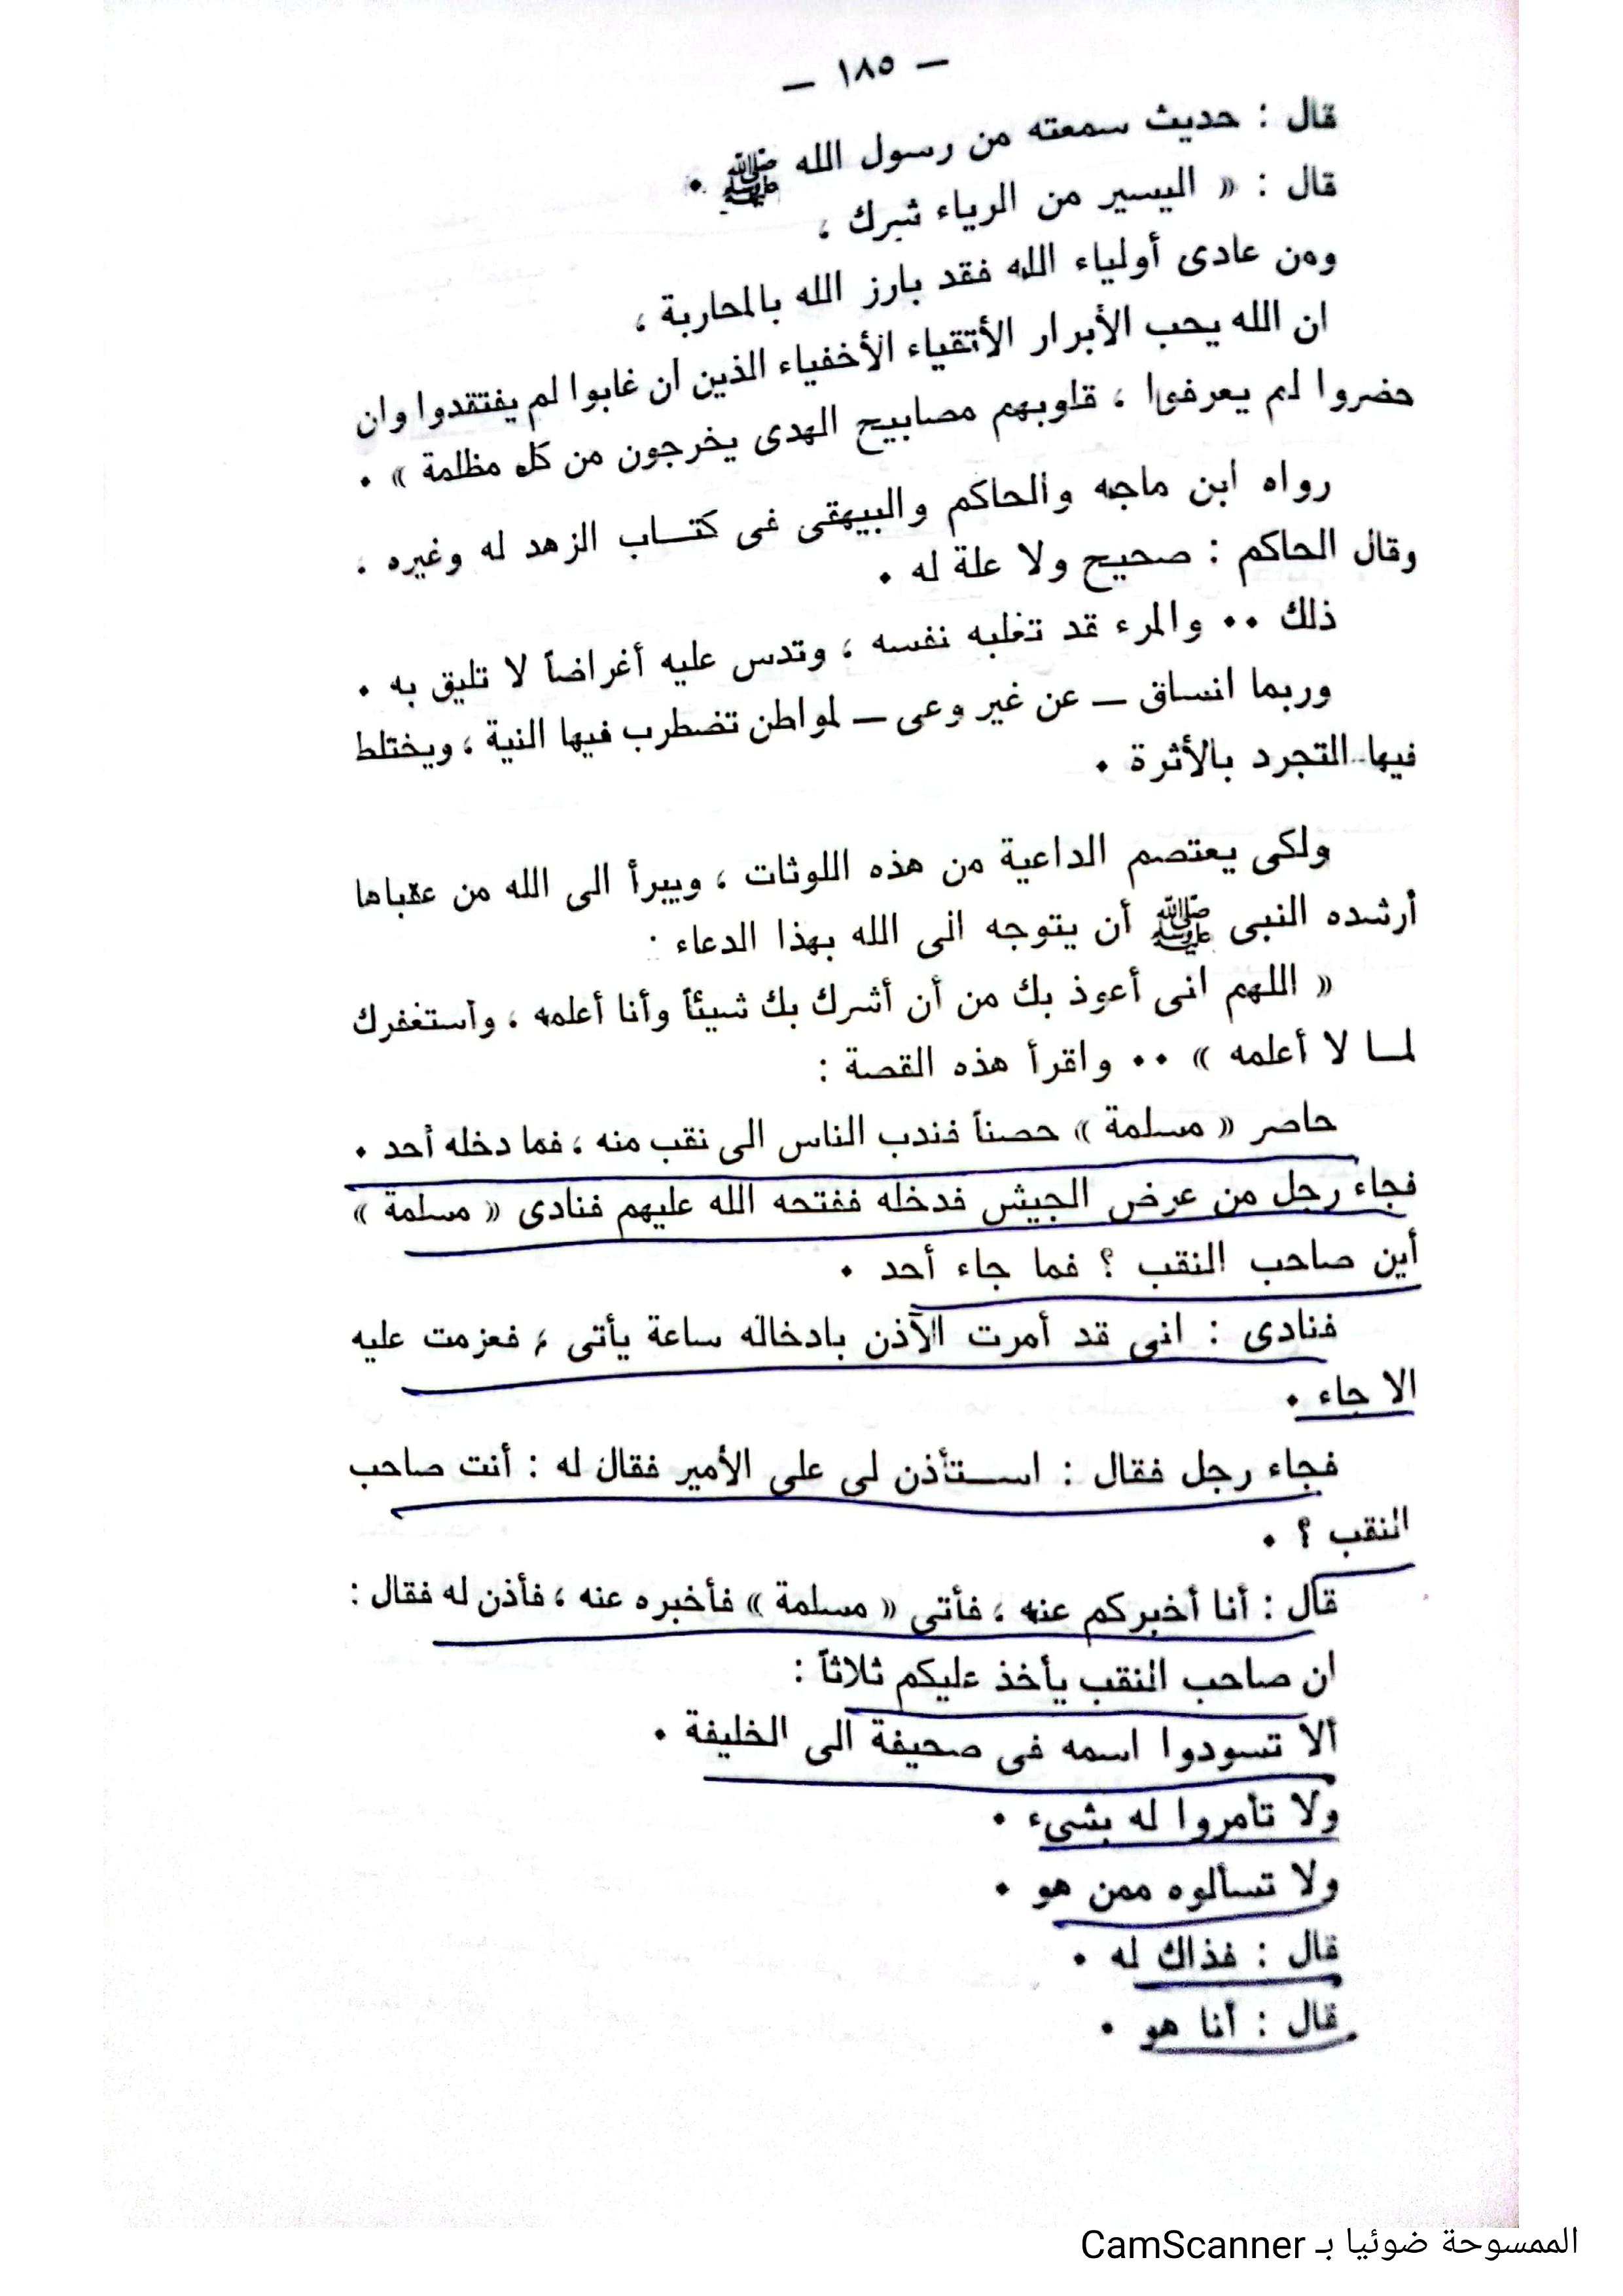 — ١٨٥ —
قال : حديث سمعته من رسول الله ﷺ .
قال : « اليسير من الرياء شرك ،
ومن عادى أولياء الله فقد بارز الله بالمحاربة ،
ان الله يحب الأبرار الأتقياء الأخفياء الذين ان غابوا لم يفتقدوا وان
حضروا لم يعرفوا ، قلوبهم مصابيح الهدى يخرجون من كل مظلمة » .
رواه ابن ماجه والحاكم والبيهقى فى كتــاب الزهد له وغيره .
وقال الحاكم : صحيح ولا علة له .
ذلك .. والمرء قد تغلبه نفسه ، وتدس عليه أغراضاً لا تليق به .
وربما انساق — عن غير وعى — لمواطن تضطرب فيها النية ، ويختلط
فيها التجرد بالأثرة .
ولكى يعتصم الداعية من هذه اللوثات ، ويبرأ الى الله من عقباها
أرشده النبى ﷺ أن يتوجه الى الله بهذا الدعاء :
« اللهم انى أعوذ بك من أن أشرك بك شيئاً وأنا أعلمه ، وأستغفرك
لمــا لا أعلمه » .. واقرأ هذه القصة :
حاصر « مسلمة » حصناً فندب الناس الى نقب منه ، فما دخله أحد .
فجاء رجل من عرض الجيش فدخله ففتحه الله عليهم فنادى « مسلمة »
أين صاحب النقب ؟ فما جاء أحد .
فنادى : انى قد أمرت الآذن بادخاله ساعة يأتى ، فعزمت عليه
الا جاء .
فجاء رجل فقال : اســتأذن لى على الأمير فقال له : أنت صاحب
النقب ؟ .
قال : أنا أخبركم عنه ، فأتى « مسلمة » فأخبره عنه ، فأذن له فقال :
ان صاحب النقب يأخذ عليكم ثلاثاً :
ألا تسودوا اسمه فى صحيفة الى الخليفة .
ولا تأمروا له بشىء .
ولا تسألوه ممن هو .
قال : فذاك له .
قال : أنا هو .
الممسوحة ضوئيا بـ CamScanner